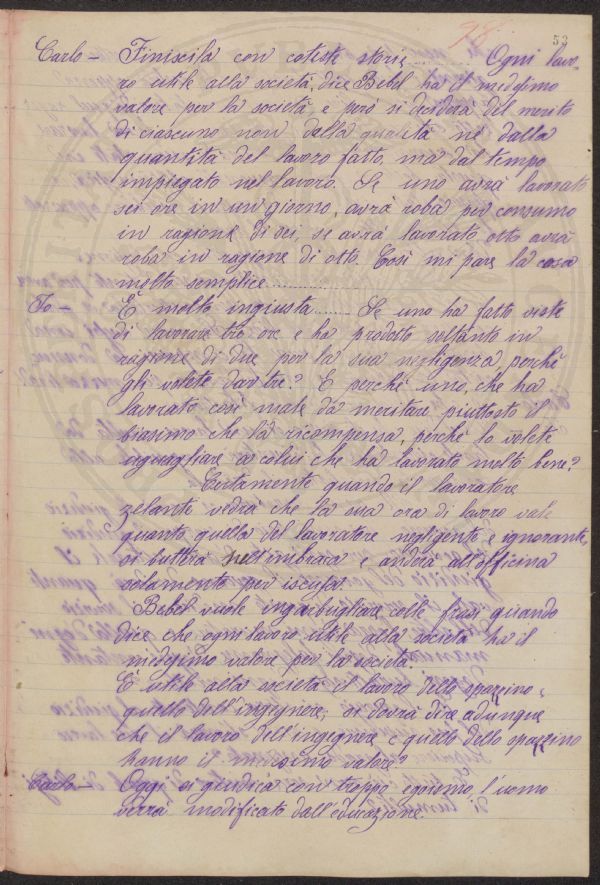 98.
53
Carlo – Finiscila con coteste storie.......... Ogni lavo-
ro utile alla società, dice Bebel ha il medesimo
valore per la società, e però si deciderà del merito
di ciascuno non dalla qualità nè dalla
quantità del lavoro fatto, ma dal tempo
impiegato nel lavoro. Se uno avrà lavorato
sei ore in un giorno, avrà roba per consumo
in ragione di sei, se avrà lavorato otto avrà
roba in ragione di otto. Così mi pare la cosa
molto semplice..............
Io – È molto ingiusta........ Se uno ha fatto viste
di lavorare tre ore e ha prodotto soltanto in
ragione di due per la sua negligenza perchè
gli volete dar tre? E perchè uno, che ha
lavorato così male da meritare piuttosto il
biasimo che la ricompensa, perchè lo volete
uguagliare a colui che ha lavorato molto bene?
Certamente quando il lavoratore
zelante vedrà che la sua ora di lavoro vale
quanto quella del lavoratore negligente e ignorante,
si butterà e anderà all'officina
solamente per iscusa.
Bebel vuole ingarbugliare colle frasi quando
dice che ogni lavoro utile alla società ha il
medesimo valore per la società.
È utile alla società il lavoro dello spazzino e
quello dell'ingegnere; si dovrà dire adunque
che il lavoro dell'ingegnere e quello dello spazzino
hanno il medesimo valore?
Carlo – Oggi si giudica con troppo egoismo, l'uomo
verrà modificato dall'educazione.